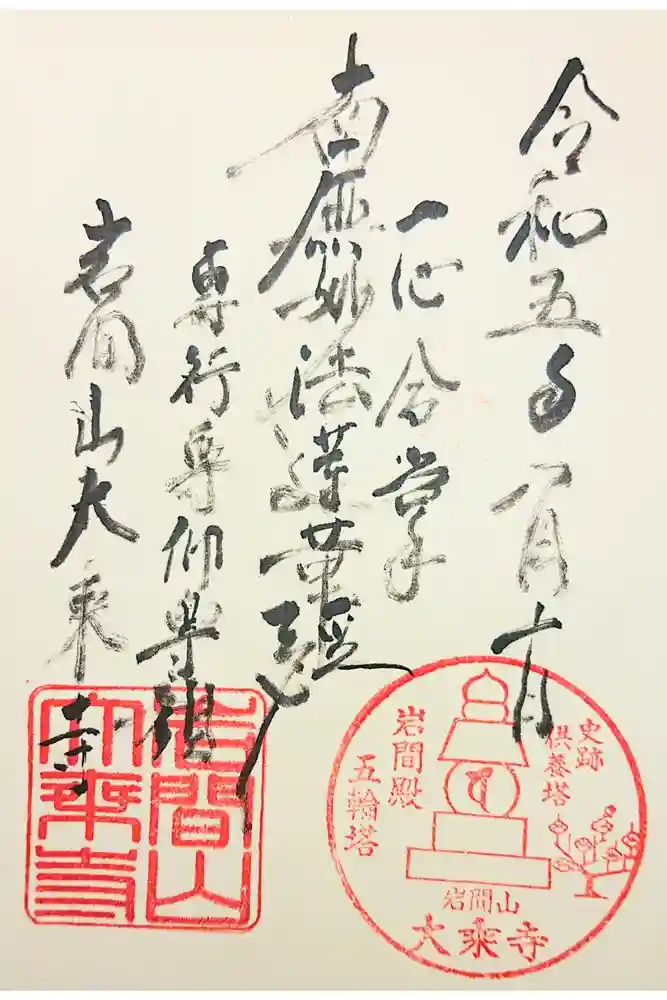 令和五年一月十日
一心合掌
南無妙法蓮華経
専行専仰
岩間山大乗寺
岩間山
大乗寺
史跡
供養塔
岩間殿
五輪塔
岩間山
大乗寺